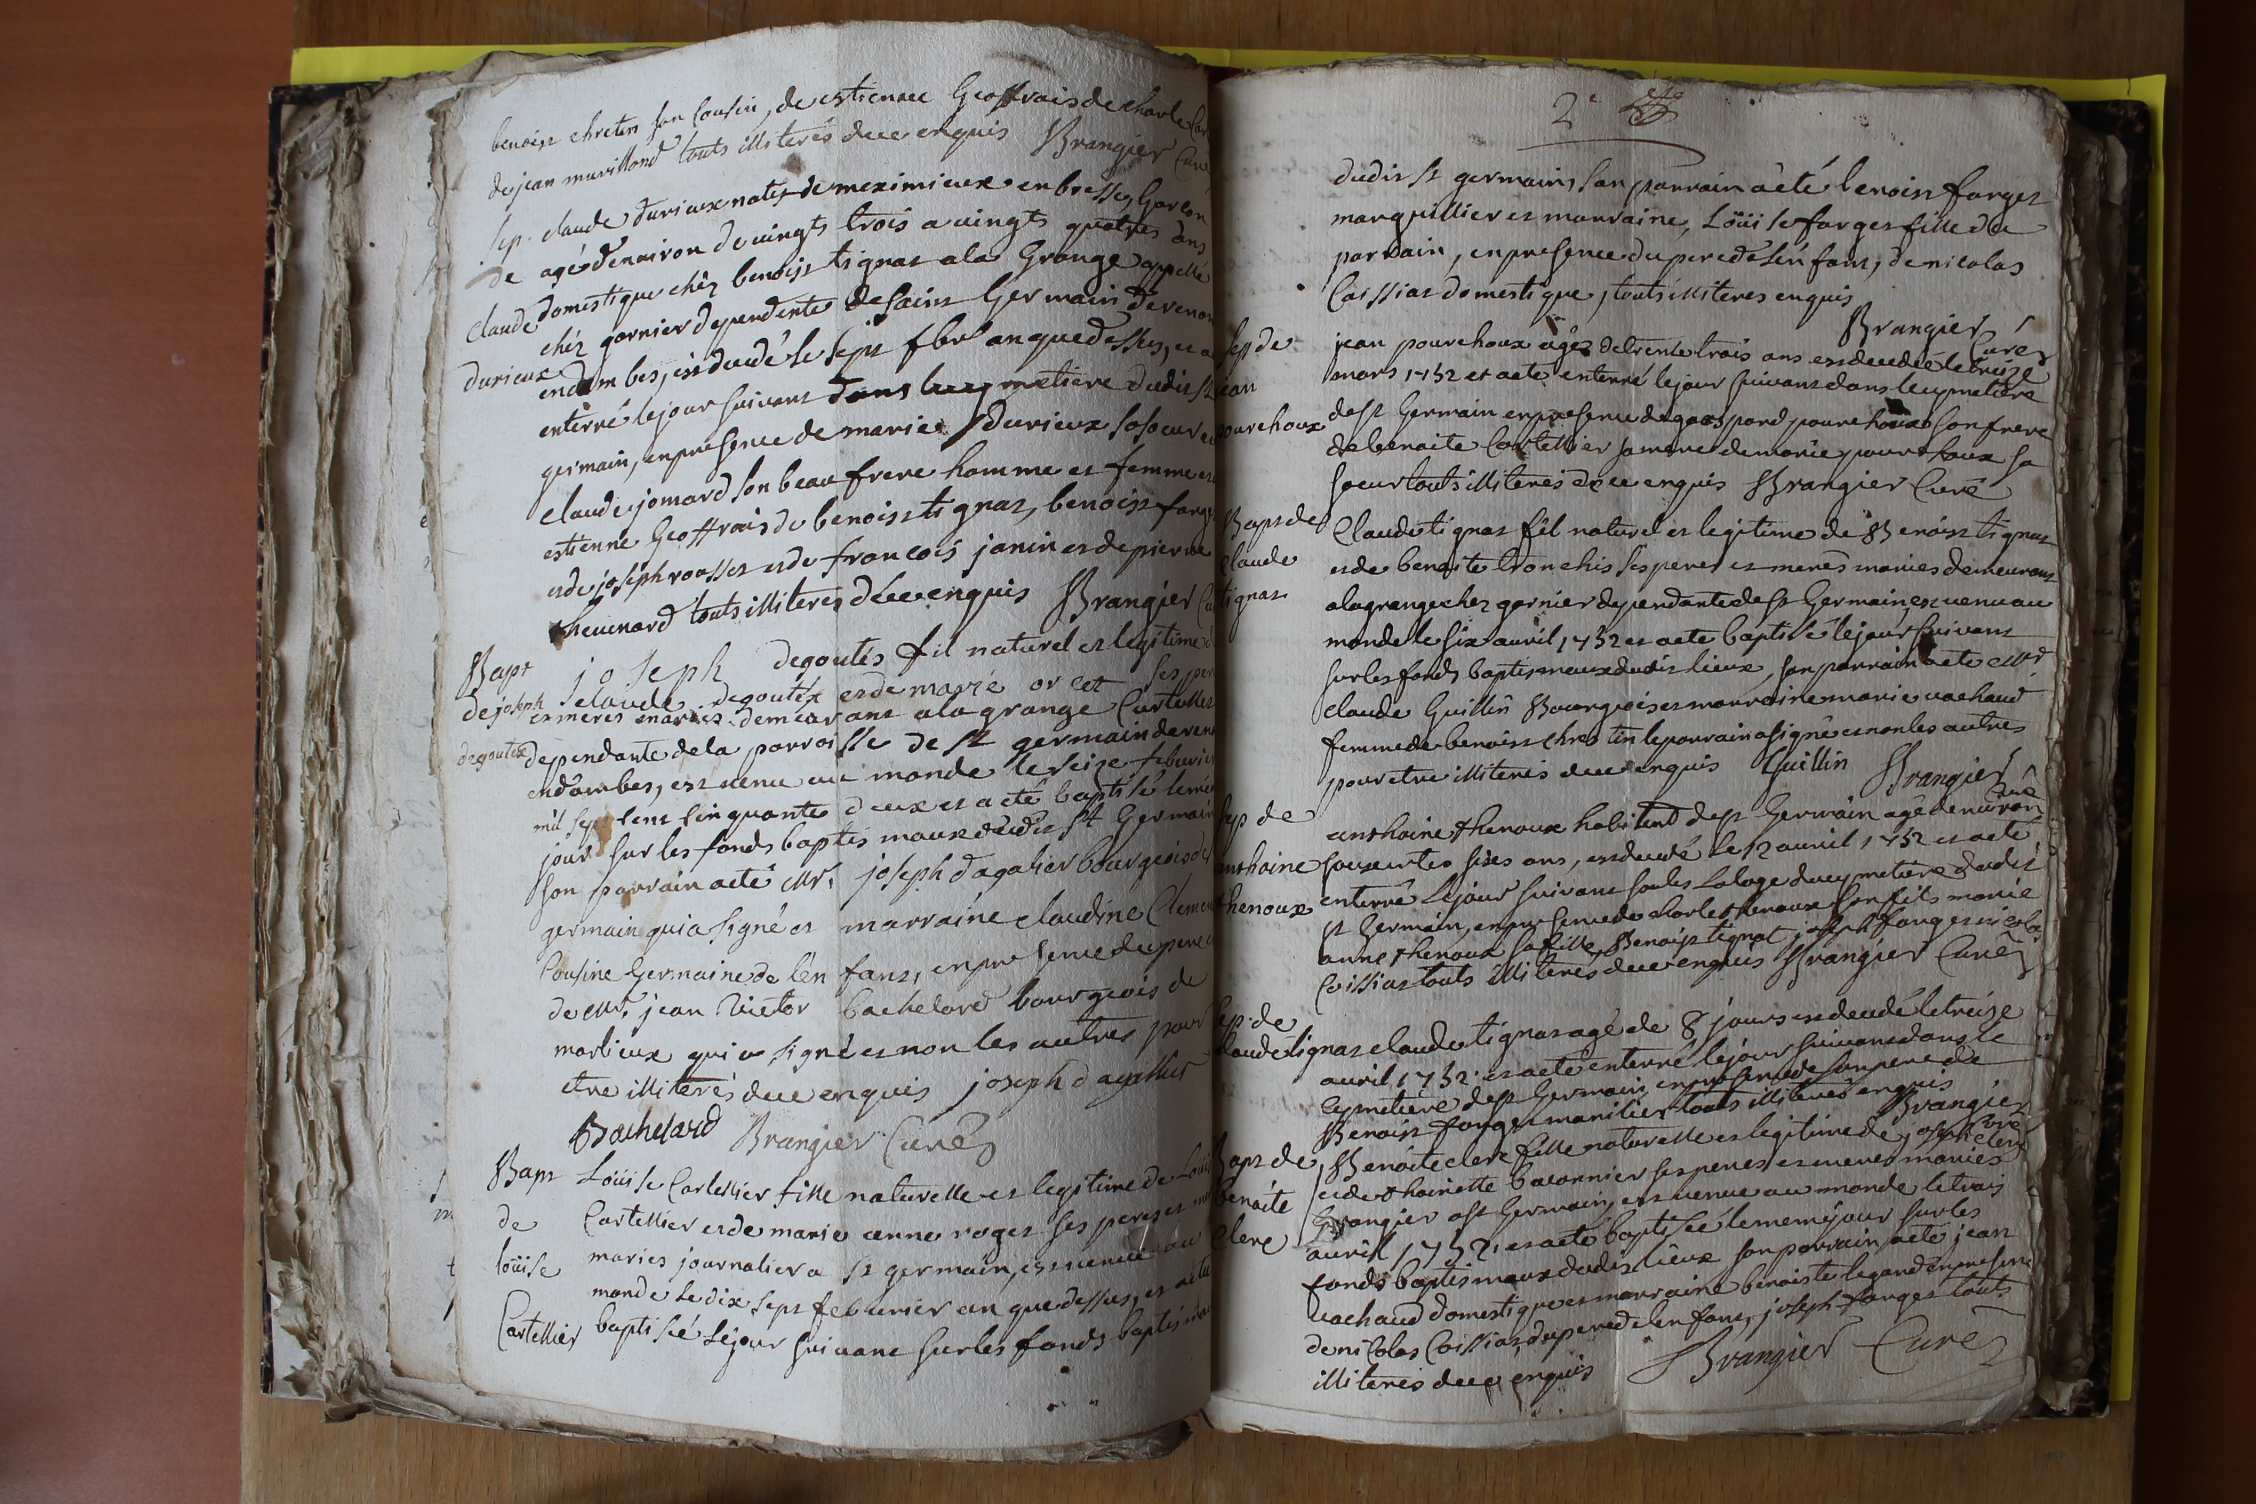 benoist chretin son cousin, de estienne Geoffrais de charle
de jean murilland touts illiterés de ce enquis Brangier Curé
sep. claude durieux natif de meximieux en bresse, Garson
de agé d'enairon de vingts trois a vingts quatres ans
claude domestique chéz benoist tignat a la Grange appellé
durieux chéz garnier dependente de saint Germain de renon
en dombes, est decedé le sept fbre an que dessus, et a
enterré le jour suivant dans le cymetiere dudit st
germain, en presence de marie durieux sa soeur et
claude jomard son beau frere homme et femme et
estienne Geoffrais de benoist tignat, benoist farge
et de joseph rousset et de francois janin et de pierre
thevenard touts illiteres de ce enquis Brangier
Bapt joseph degoutés fil naturel et legitime d
de joseph claude degoutéx et de marie orcet ses per
degoutex et meres mariés demeurant a la grange Cartellier
dependante de la parroisse de st germain de ren
en dombes, est venu au monde le seize febvrier
mil sept cent sinquante deux et a eté baptisé le mé
jour sur les fonds baptismaux dudit st Germain
son parrain a eté Mr. joseph dagalier bourgeois de st
germain qui a signé et marraine claudine Clemen
cousine Germaine de l'enfant, en presence du pere
de Mr. jean victor bachelard bourgeois de
marlieux qui a signé et non les autres pour
etre illiterés de ce enquis joseph dagallier
Bachelard Brangier Curé
Bapt Loüise Cartellier fille naturelle et legitime de Loüis
de Cartellier et de marie anne roger ses peres et
loüise maries journalier a st germain, est venue au
Cartellier monde le dix sept febvrier an que dessus, et a eté
baptiseé le jour suivant sur les fonds baptismau
2e
dudit st germain, son parrain a eté benoist farget
marguillier et marraine, Loüise farges fille du
parrain, en presence du pere de l'enfant, de nicolas
Caissiat domestique, touts illiteres enquis
Brangier Curé
sep de jean pourchoux agés de trente trois ans est decedé le treize
jean mars 1752 et a eté enterré le jour suivant dans le cymetière
pourchoux de st Germain en presence de gaspard pourchoux son frere
de benoite Cartellier sa mere de marie pourchoux sa
soeur touts illiterés de ce enquis Brangier Curé
Bapt de Claude tignat fil naturel et legitime de Benoist tignat
claude et de benoite tronchis ses peres et meres maries demeurant
tignat a la grange chez garnier dependante de st Germain, est venu au
monde le six avril 1752 et a eté baptisé le jour suivant
sur les fonds baptismaux dudit lieux, son parrain a eté Mr
claude Guillin Bourgeois et marraine marie vachaud
femme de benoist chretin le parrain a signé et non les autres
pour etre illiterés de ce enquis Guillin Brangier Curé
sep de anthoine thenoux habitent de st Germain agé d'enviran
anthoine soixantes sixes ans, est decedé le 12 avril 1752 et a eté
thenoux enterré le jour suivant sous les Lalage du cymetière dudit
st Germain, en presence de charle thenoux son fils marie
anne thenoux sa fille, Benoist tignat, joseph farges nicolas
Caissiat touts illiterés de ce enquis Brangier Curé
sep. de claude tignat agé de 8 jours est decedé le treize
claude tignat avril 1752. et a eté enterré le jour suivant dans le
cymetière de st Germain en presence de son pere de
Benoist farges manilier touts illiterés enquis
Brangier Curé
Bapt de Benoite clere fille naturelle et legitime de joseph clere
benoite et de thoinette baconnier ses peres et meres mariés
clere Grangier a st Germain, est venue au monde le trois
avril 1752, et a eté baptiseé le meme jour sur les
fonds baptismaux dudit lieux son parrain a eté jean
vachaud domestique et marraine benoiste legand en presence
de nicolas Caissiat, du pere de l'enfant, joseph farges touts
illiterés de ce enquis Brangier Curé